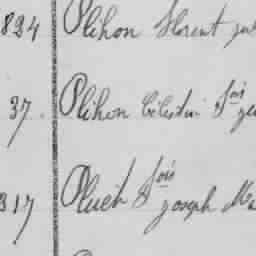 824 Plihon Florent
37. Plihon Célestin fois
317 Pluet fois joseph Ma